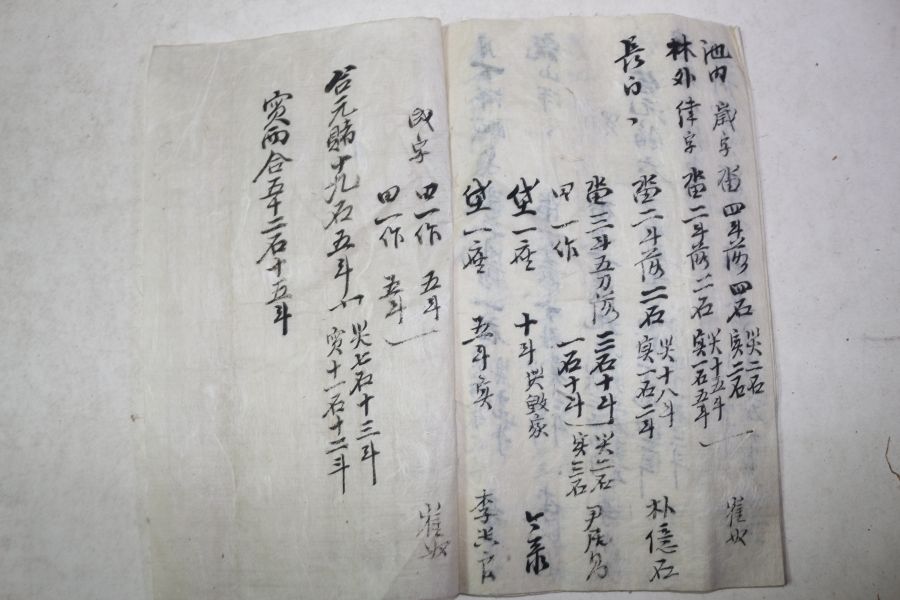 池内 歲字 畓 四斗落 四石 災二石 実二石
林外 律字 畓 二斗落 二石 災十五斗 実一石五斗 崔奴
長 畓 二斗落 二石 災十八斗 実一石二斗 朴億石
畓 三斗五刀落 三石十斗 災二石 尹
田一作 一石十斗 実三石
垈一座 十斗
垈一座 五斗 実 李
字 田一作 五斗
田一作 五斗 崔奴
合元賭十九石五斗 災七石十三斗 実十一石十二斗
実兩合五十二石十五斗